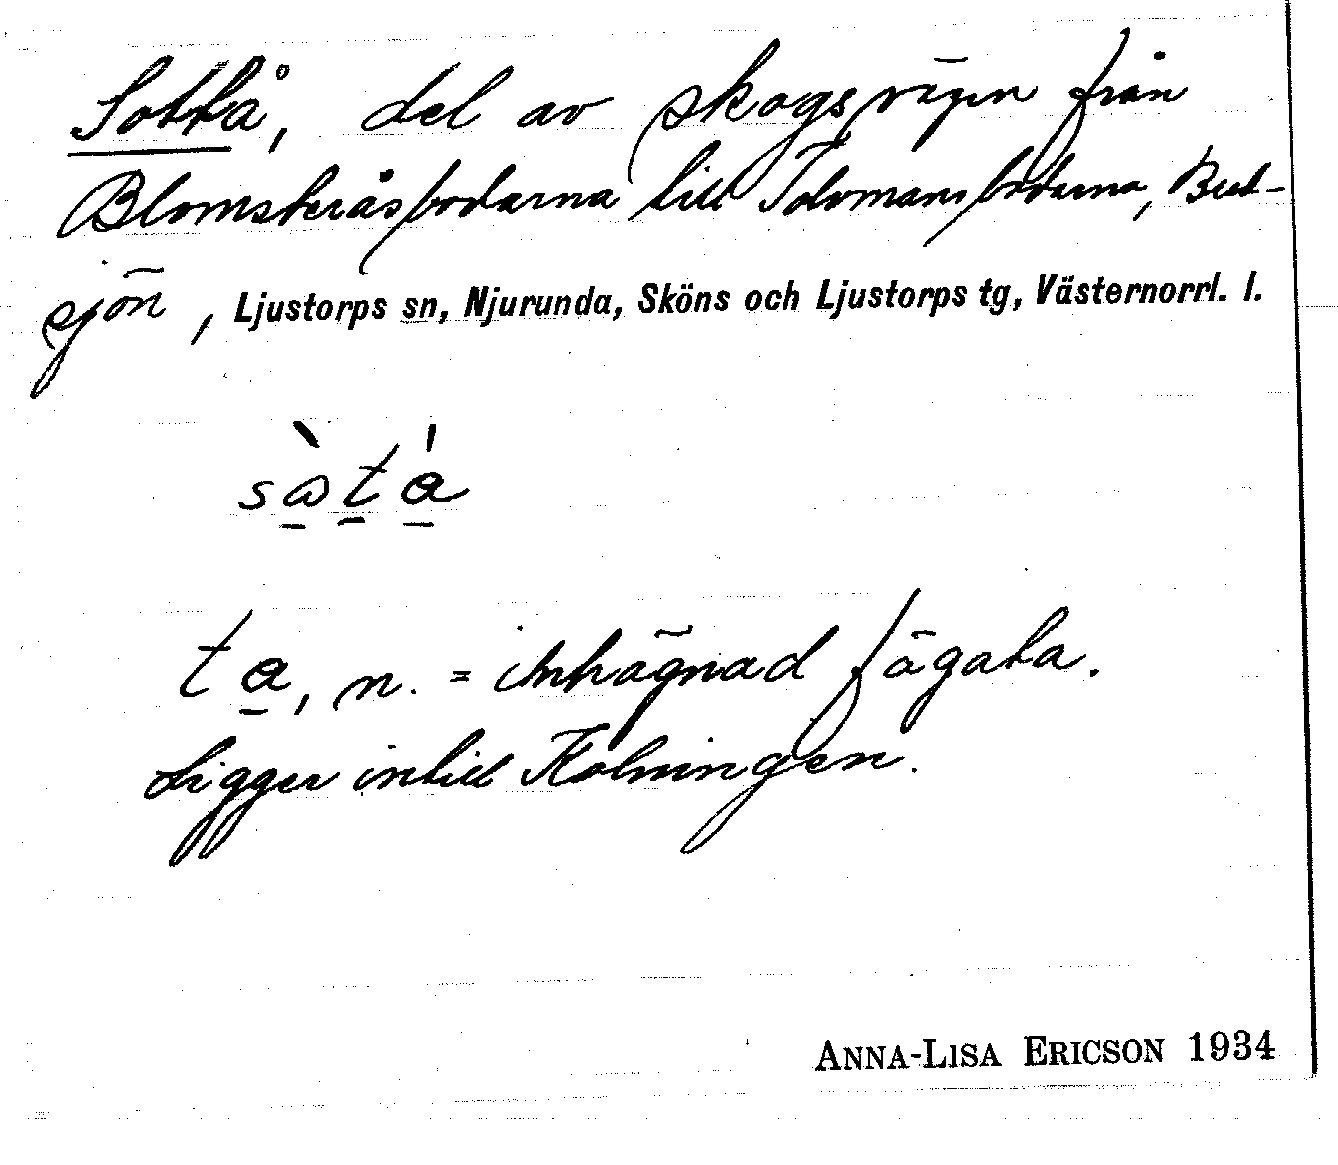 Sottå, del av skogsvägen från
Blomsteråsbodarna till Tolvmansbodarna, Bred-
sjön, Ljustorps sn, Njurunda, Sköns och Ljustorps tg, Västernorrl. l.
ta, n. = inhägnad fägata.
Ligger intill Kolningen.
ANNA-LISA ERICSON 1934